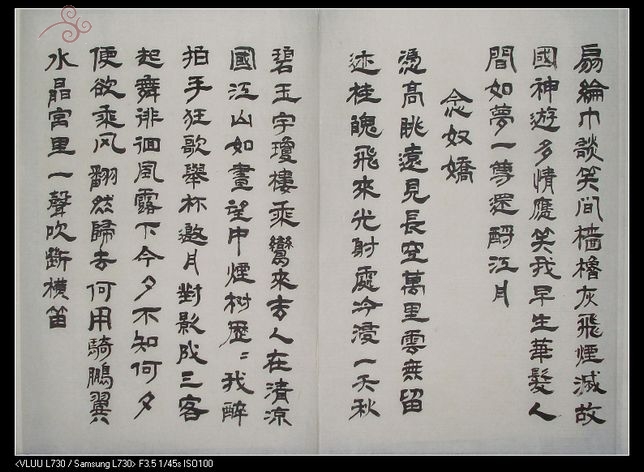 扇綸巾談笑间樯櫓灰飛煙滅故
國神遊多情應笑我早生華髮人
間如夢一尊还酹江月
念奴嬌
憑高眺遠見長空萬里雲無留
迹桂魄飛來光射處冷浸一天秋
碧玉宇瓊樓乘鸞來去人在清凉
國江山如畫望中煙树歷〻我醉
拍手狂歌舉杯邀月對影成三客
起舞徘徊風露下今夕不知何夕
便欲乘风翻然歸去何用騎鵬翼
水晶宮里一聲吹斷橫笛
<VLUU L730 / Samsung L730> F3.5 1/45s ISO100